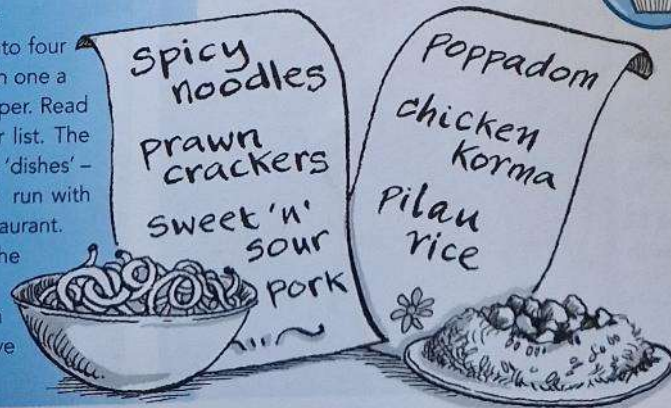 to four
n one a
per. Read
r list. The
'dishes' –
run with
aurant.
he
n
ve
spicy
noodles
prawn
crackers
sweet 'n'
sour
pork
poppadom
chicken
korma
pilau
rice